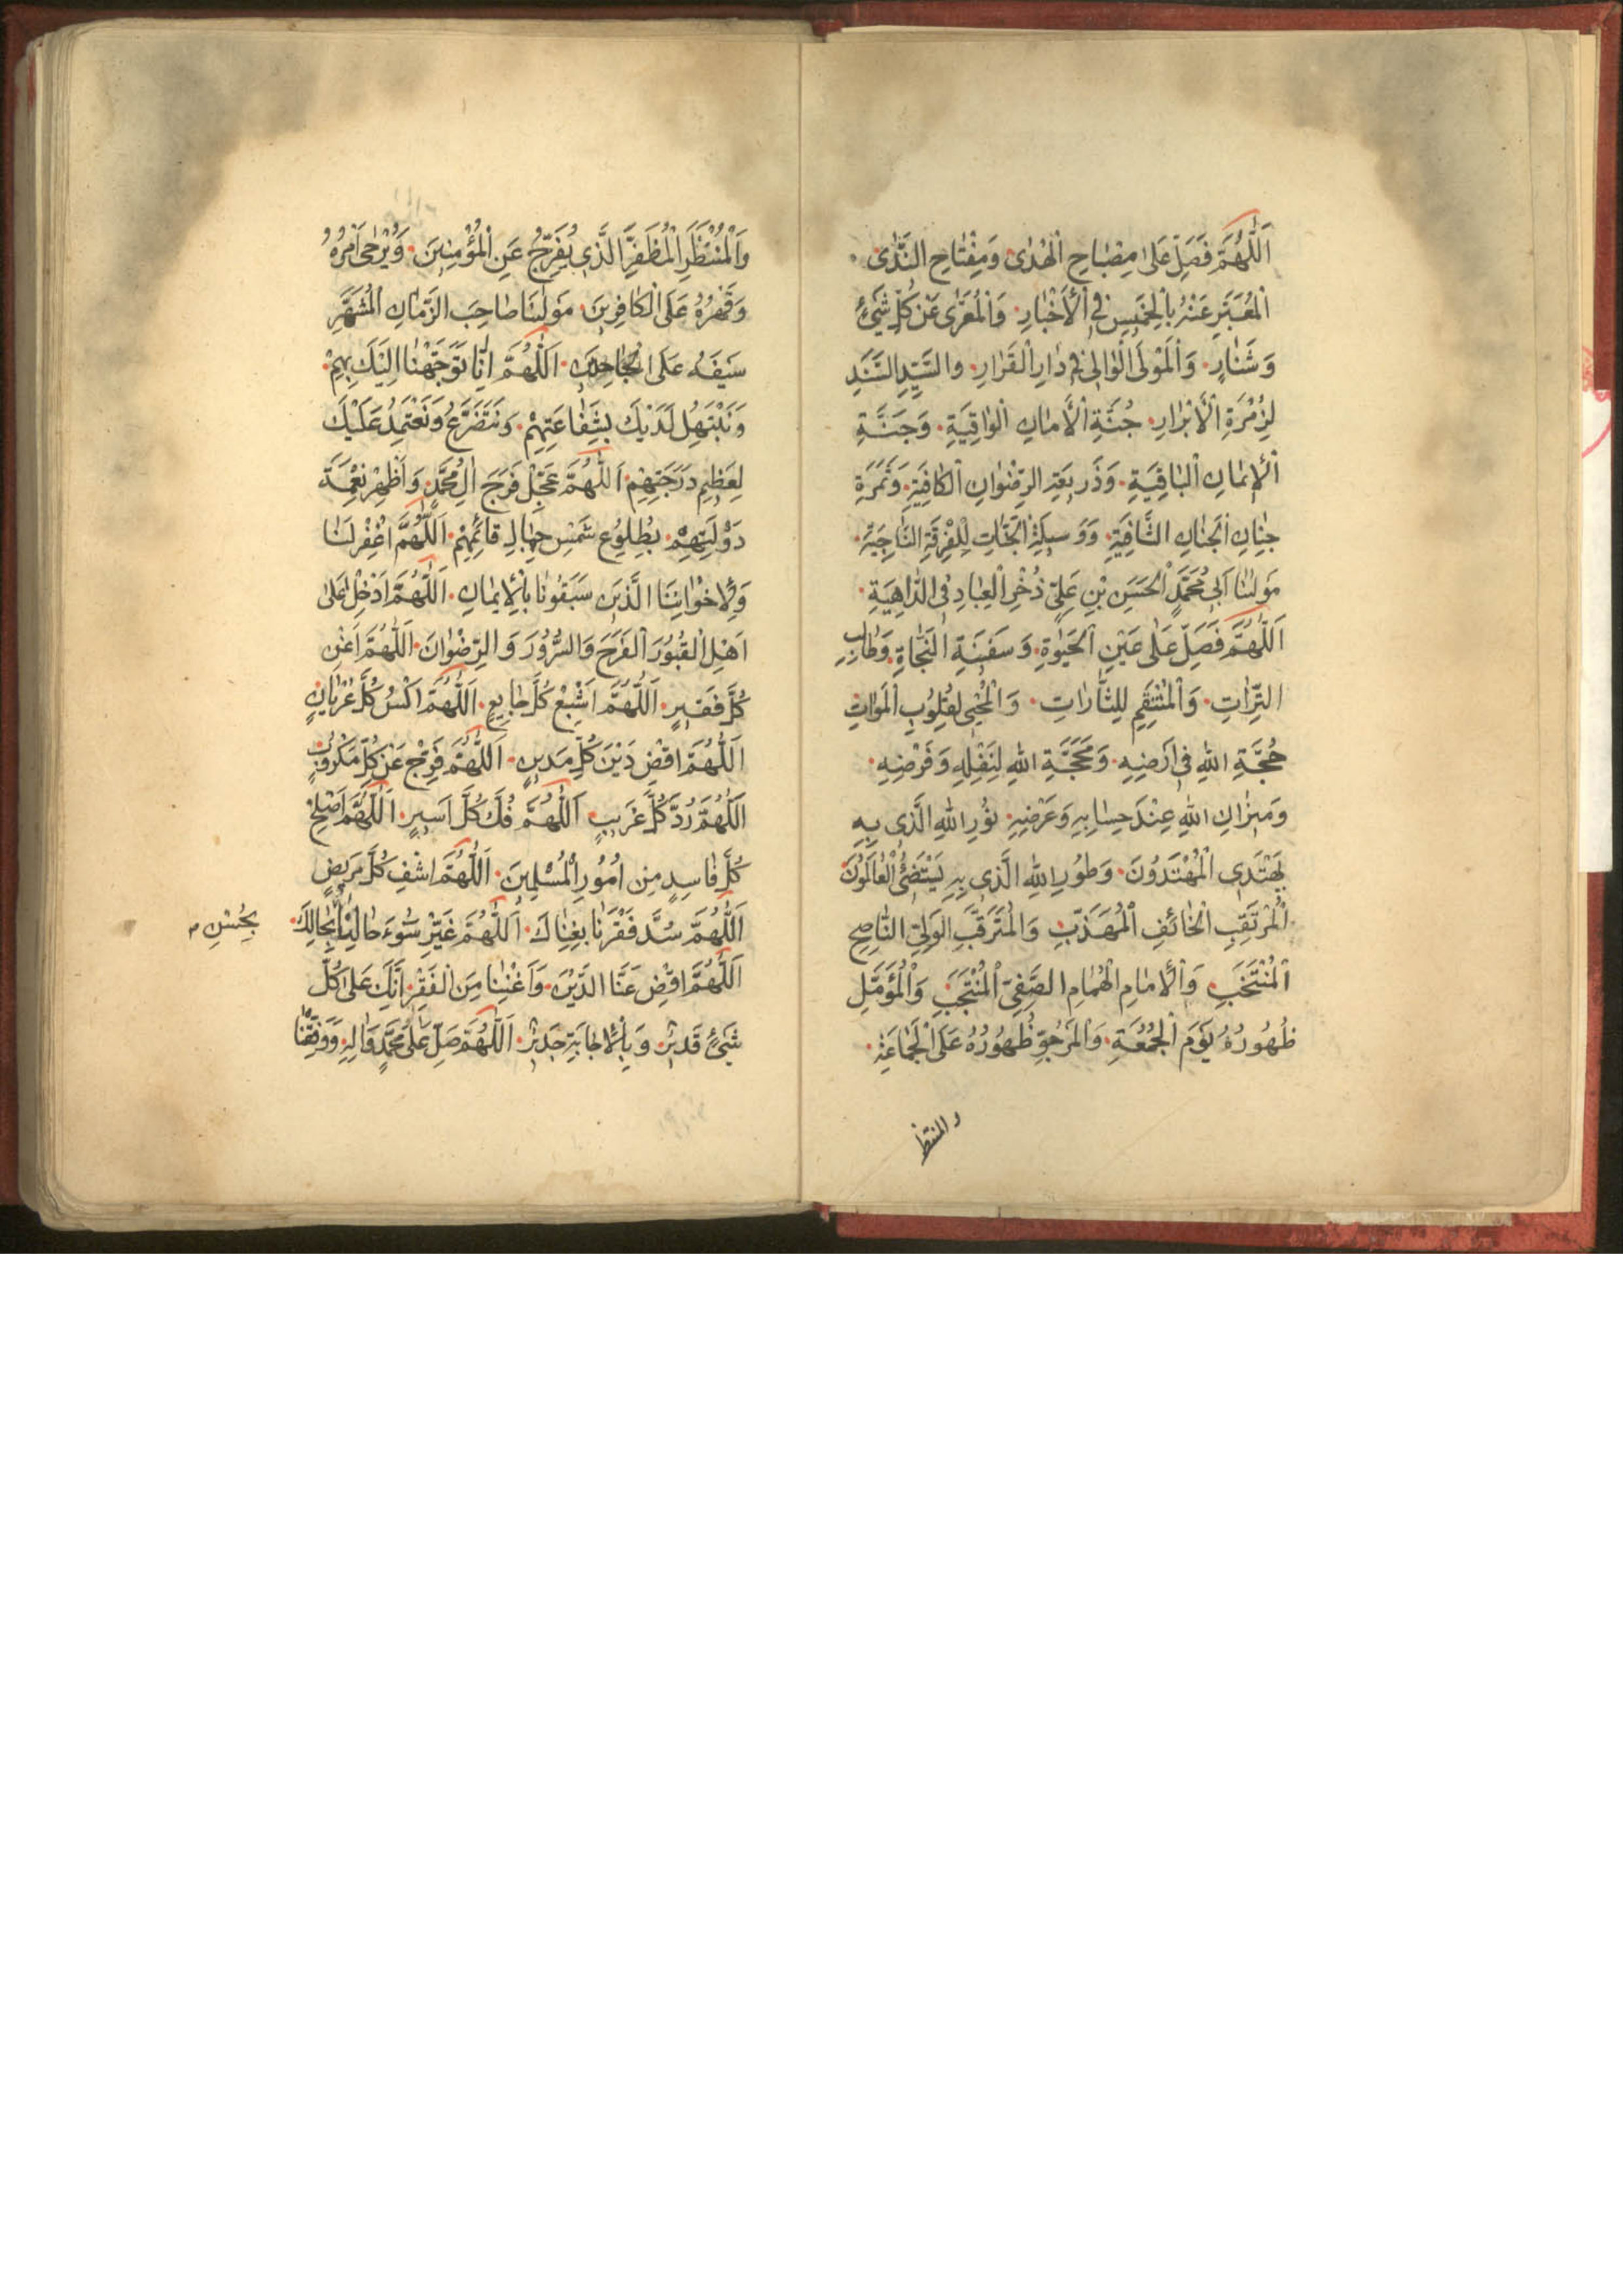 اَللّٰهُمَّ فَصَلِّ عَلىٰ مِصْبٰاحِ الْهُدىٰ وَمِفْتٰاحِ النَّدىٰ
اَلْمُعَبَّرِ عَنْهُ بِالْخَمِيسِ فِي الْأَخْبٰارِ وَالْمُعَرّىٰ عَنْ كُلِّ شَيْءٍ
وَشَنٰارٍ وَالْمَوْلَى الْوٰالِي فِي دٰارِ الْقَرٰارِ والسَّيِّدِ السَّنَدِ
لِزُمْرَةِ الْأَبْرٰارِ جُنَّةِ الْأَمٰانِ الْوٰاقِيَةِ وَجَنَّةِ
الْإيمٰانِ الْبٰاقِيَةِ وَذَرِيعَةِ الرِّضْوٰانِ الْكٰافِيَةِ وَثَمَرَةِ
جِنٰانِ الْجَنٰانِ الشّٰافِيَةِ وَوَسِيلَةِ النَّجٰاتِ لِلْفِرْقَةِ النّٰاجِيَةِ
مَوْلٰينٰا اَبِي مُحَمَّدٍ الْحَسَنِ بْنِ عَلِيٍّ ذُخْرِ الْعِبٰادِ فِي الدّٰاهِيَةِ
اَللّٰهُمَّ فَصَلِّ عَلىٰ عَيْنِ الْحَيٰوةِ وَسَفِينَةِ النَّجٰاةِ وَطٰالِبِ
التِّرٰاتِ وَالْمُنْتَقِمِ لِلثّٰارٰاتِ وَالْمُحْيِي لِقُلُوبِ الْمَوٰاتِ
حُجَّةِ اللهِ فِي اَرْضِهِ وَمَحَجَّةِ اللهِ لِنَفْلِهِ وَفَرْضِهِ
وَمِيزٰانِ اللهِ عِنْدَ حِسٰابِهِ وَعَرْضِهِ نُورِ اللهِ الَّذِي بِهِ
يَهْتَدِي الْمُهْتَدُونَ وَطُورِ اللهِ الَّذِي بِهِ يَسْتَضِئُ الْعٰالَمُونَ
اَلْمُرْتَقِبِ الْخٰائِفِ الْمُهَذَّبِ وَالْمُتَرَقَّبِ الْوَلِيِّ النّٰاصِحِ
الْمُنْتَخَبِ وَالْإمٰامِ الْهُمٰامِ الصَّفِيِّ الْمُنْتَجَبِ وَالْمُؤَمَّلِ
ظُهُورُهُ يَوْمَ الْجُمُعَةِ وَالْمَرْجُوِّ ظُهُورُهُ عَلَى الْجَمٰاعَةِ
والمنتظر
وَالْمُنْتَظَرِ الْمُظَفَّرِ الَّذِي يُفَرِّجُ عَنِ الْمُؤْمِنِينَ وَيُرْجىٰ اَمْرُهُ
وَقَهْرُهُ عَلَى الْكٰافِرِينَ مَوْلٰينٰا صٰاحِبِ الزَّمٰانِ الْمُشَهَّرِ
سَيْفُهُ عَلَى الْجٰاحِدِينَ اَللّٰهُمَّ اِنّٰا تَوَجَّهْنٰا اِلَيْكَ بِهِمْ
وَنَبْتَهِلُ لَدَيْكَ بِشَفٰاعَتِهِمْ وَنَتَضَرَّعُ وَنَعْتَمِدُ عَلَيْكَ
لِعَظِيمِ دَرَجَتِهِمْ اَللّٰهُمَّ عَجِّلْ فَرَجَ اٰلِ مُحَمَّدٍ وَاَظْهِرْ نِعْمَةَ
دَوْلَتِهِمْ بِطُلُوعِ شَمْسِ جَمٰالِ قٰائِمِهِمْ اَللّٰهُمَّ اغْفِرْ لَنٰا
وَلِإخْوٰانِنَا الَّذِينَ سَبَقُونٰا بِالْإيمٰانِ اَللّٰهُمَّ اَدْخِلْ عَلىٰ
اَهْلِ الْقُبُورِ الْفَرَحَ وَالسُّرُورَ وَالرِّضْوٰانَ اَللّٰهُمَّ اَغْنِ
كُلَّ فَقِيرٍ اَللّٰهُمَّ اَشْبِعْ كُلَّ جٰايِعٍ اَللّٰهُمَّ اكْسُ كُلَّ عُرْيٰانٍ
اَللّٰهُمَّ اقْضِ دَيْنَ كُلِّ مَدِينٍ اَللّٰهُمَّ فَرِّجْ عَنْ كُلِّ مَكْرُوبٍ
اَللّٰهُمَّ رُدَّ كُلَّ غَرِيبٍ اَللّٰهُمَّ فُكَّ كُلَّ اَسِيرٍ اَللّٰهُمَّ اَصْلِحْ
كُلَّ فٰاسِدٍ مِنْ اُمُورِ الْمُسْلِمِينَ اَللّٰهُمَّ اشْفِ كُلَّ مَرِيضٍ
اَللّٰهُمَّ سُدَّ فَقْرَنٰا بِغِنٰاكَ اَللّٰهُمَّ غَيِّرْ سُوءَ حٰالِنٰا بِحٰالِكَ
بِحُسْنِ
اَللّٰهُمَّ اقْضِ عَنَّا الدَّيْنَ وَاَغْنِنٰا مِنَ الْفَقْرِ اِنَّكَ عَلىٰ كُلِّ
شَيْءٍ قَدِيرٌ وَبِالْإجٰابَةِ جَدِيرٌ اَللّٰهُمَّ صَلِّ عَلىٰ مُحَمَّدٍ وَاٰلِهِ وَوَفِّقْنٰا